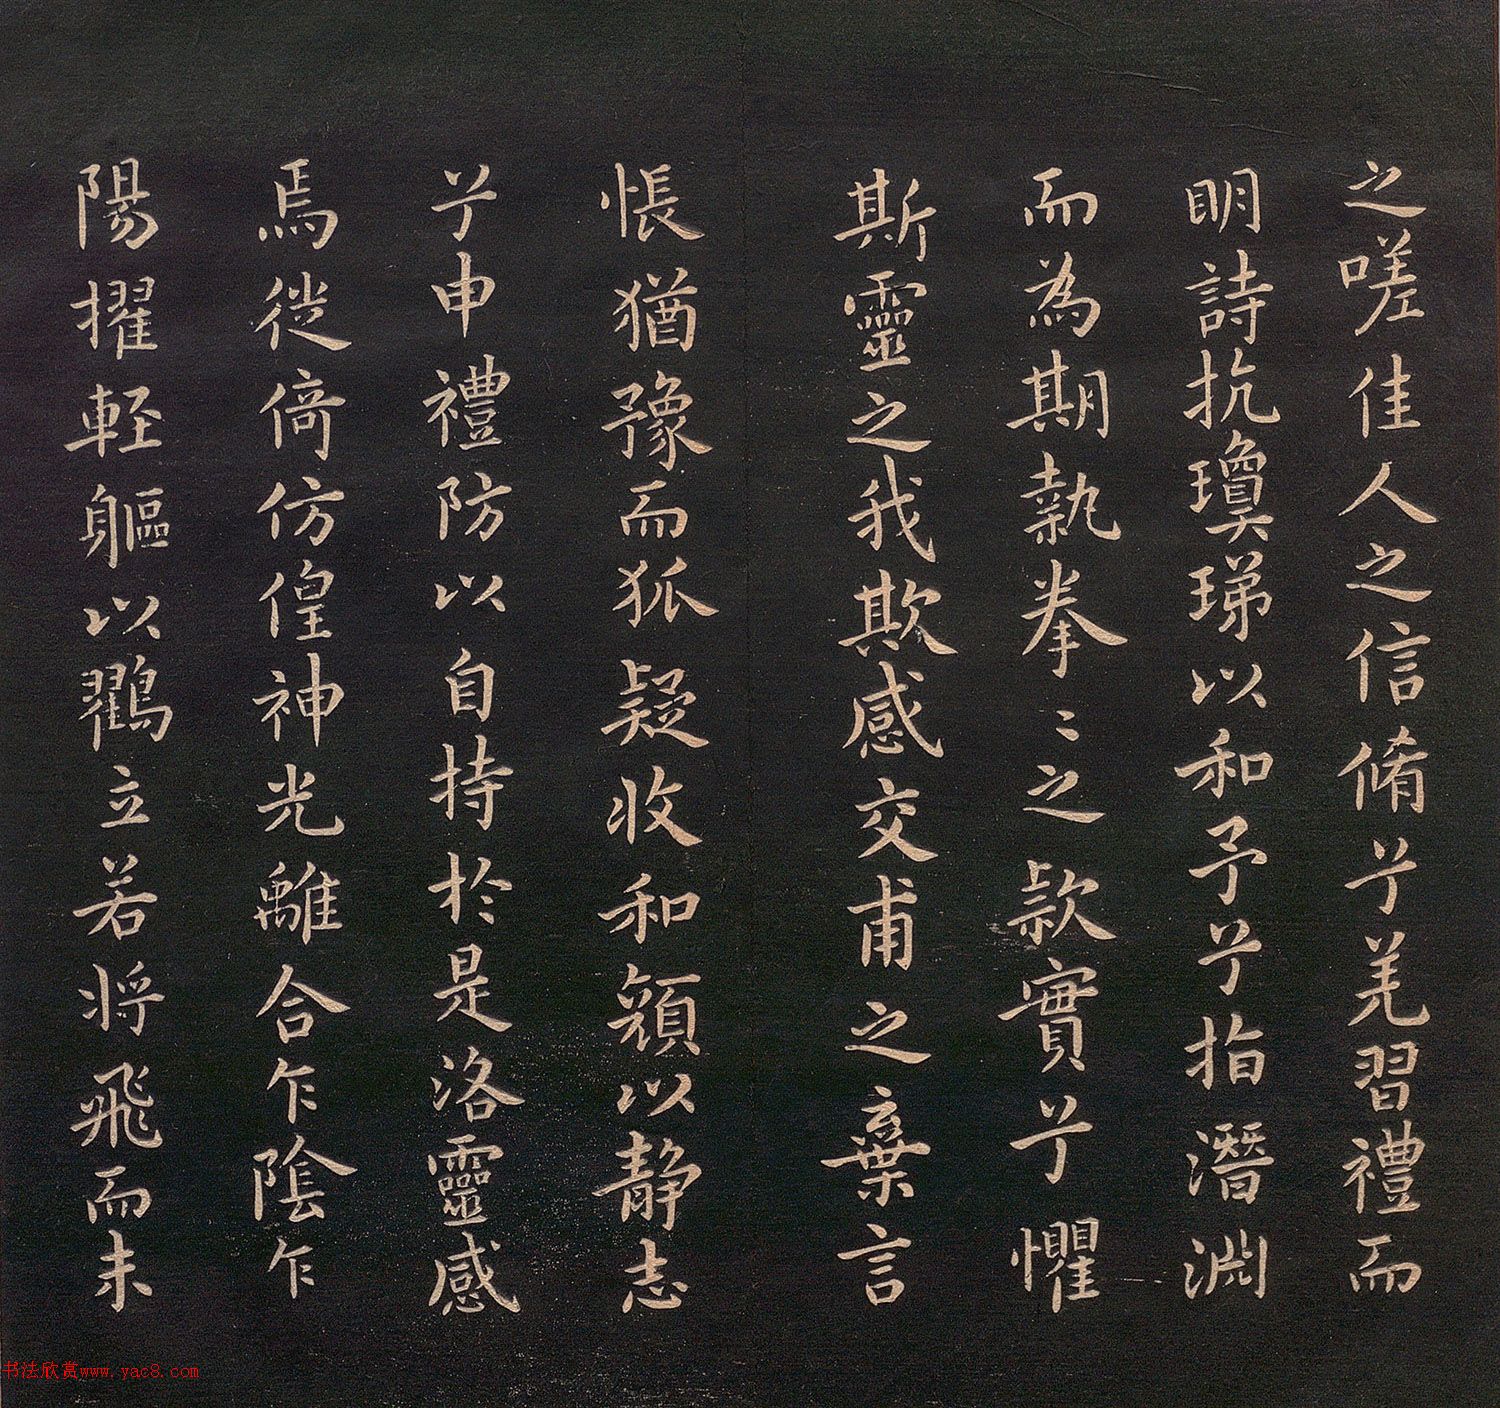 之嗟佳人之信脩兮羌習禮而
明詩抗瓊珶以和予兮指潛淵
而為期執拳〻之款實兮懼
斯靈之我欺感交甫之棄言
悵猶豫而狐疑收和顏以静志
兮申禮防以自持於是洛靈感
焉徙倚仿偟神光離合乍陰乍
陽擢軽軀以鸛立若将飛而未
书法欣赏www.yac8.com